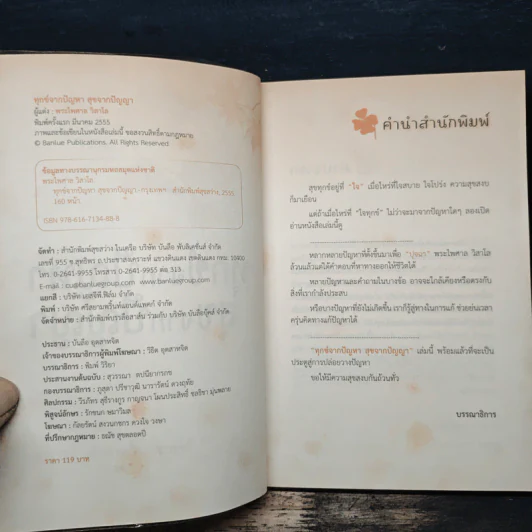 ทุกข์จากปัญหา สุขจากปัญญา
ผู้แต่ง : พระไพศาล วิสาโล
พิมพ์ครั้งแรก มีนาคม 2555
ภาพและข้อเขียนในหนังสือเล่มนี้ ขอสงวนสิทธิ์ตามกฎหมาย
© Banlue Publications. All Rights Reserved
ข้อมูลทางบรรณานุกรมหอสมุดแห่งชาติ
พระไพศาล วิสาโล
ทุกข์จากปัญหา สุขจากปัญญา.-กรุงเทพฯ : สำนักพิมพ์สุขสว่าง, 2555.
160 หน้า.
ISBN 978-616-7134-88-8
จัดทำ : สำนักพิมพ์สุขสว่าง ในเครือ บริษัท บันลือ พับลิเคชั่นส์ จำกัด
เลขที่ 955 ซ.สุทธิพร ถ.ประชาสงเคราะห์ แขวงดินแดง เขตดินแดง กทม. 10400
โทร. 0-2641-9955 โทรสาร 0-2641-9955 ต่อ 313
E-mail : cu@banluegroup.com www.banluegroup.com
แยกสี : บริษัท เอสซีพีฟิล์ม จำกัด
พิมพ์ : บริษัท ศรีสยามพริ้นท์แอนด์แพคก์ จำกัด
จัดจำหน่าย : สำนักพิมพ์บรรลือสาส์น ร่วมกับ บริษัท บันลือบุ๊คส์ จำกัด
ประธาน : บันลือ อุตสาหจิต
เจ้าของบรรณาธิการผู้พิมพ์โฆษณา : วิธิต อุตสาหจิต
บรรณาธิการ : พิมพ์ วิริยา
ประสานงานต้นฉบับ : สุวรรณา
กองบรรณาธิการ : ภูสดา ปรีชาวุฒิ นารารัตน์ ดวงฤทัย
ศิลปกรรม : วิรภัทร
พิสูจน์อักษร : รักชนก
โฆษณา : กัลยรัตน์ สงวนกชกร ดวงใจ วงษา
ที่ปรึกษากฎหมาย : ธณัช สุขผลอดปี
ราคา 119 บาท
คำนำสำนักพิมพ์
สุขทุกข์อยู่ที่ "ใจ" เมื่อไหร่ที่ใจสบาย ใจโปร่ง ความสุขสงบ
ก็มาเยือน
แต่ถ้าเมื่อไหร่ที่ "ใจทุกข์" ไม่ว่าจะมาจากปัญหาใดๆ ลองเปิด
อ่านหนังสือเล่มนี้ดู
หลากหลายปัญหาที่ตั้งขึ้นมาเพื่อ "ปุจฉา" พระไพศาล วิสาโล
ล้วนแล้วแต่ได้คำตอบที่หาทางออกให้ชีวิตได้
หลายปัญหาและคำถามในบางข้อ อาจจะใกล้เคียงหรือตรงกับ
สิ่งที่เรากำลังประสบ
หรือบางปัญหาที่ยังไม่เกิดขึ้น เราก็รู้สู่ทางในการแก้ ช่วยย่นเวลา
ครุ่นคิดทางแก้ปัญหาได้
"ทุกข์จากปัญหา สุขจากปัญญา" เล่มนี้ พร้อมแล้วที่จะเป็น
ประตูสู่การปล่อยวางปัญหา
ขอให้มีความสุขสงบกันถ้วนทั่ว
บรรณาธิการ